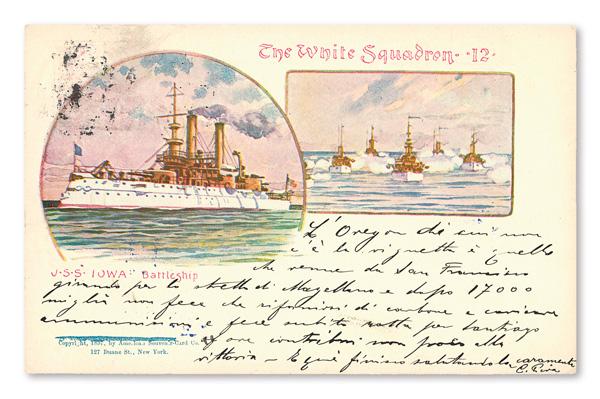 The White Squadron - 12 -
U.S.S. IOWA: Battleship
L'Oregon di cui non
c'è la vignetta è quello
che venne da San Francisco
girando per lo stretto di Magellano e dopo 17000
miglia non fece che rifornirsi di carbone e caricare
ammunizioni e fece subito rotta per Santiago
ove contribuì non poco alla
vittoria - E qui finisco salutando la caramente
Copyright, 1897, by American Souvenir-Card Co.
127 Duane St., New York.